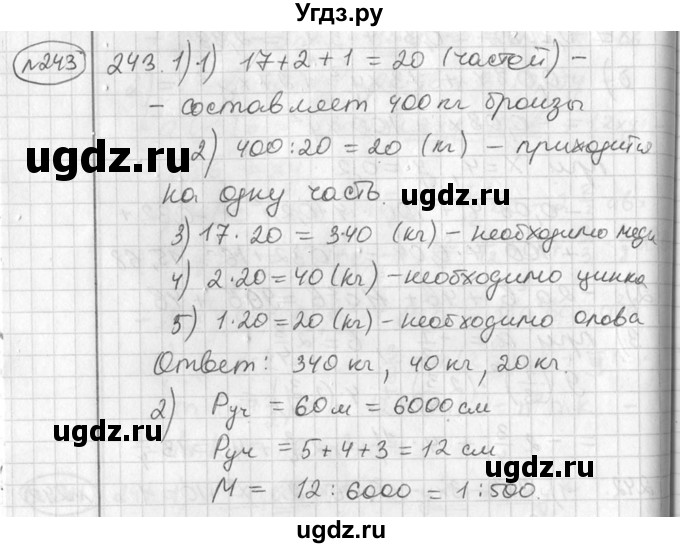 Угдз.ру
№243 243. 1) 1) 17+2+1 = 20 (частей) –
– составляет 400 кг бронзы
2) 400:20 = 20 (кг) – приходится
на одну часть.
3) 17·20 = 340 (кг) – необходимо меди
4) 2·20 = 40 (кг) – необходимо цинка
5) 1·20 = 20 (кг) – необходимо олова
Ответ: 340 кг, 40 кг, 20 кг.
2) Pуч = 60 м = 6000 см
Pуч = 5+4+3 = 12 см
М = 12:6000 = 1:500.
ugdz.ru
ugdz.ru
ugdz.ru
ugdz.ru
ugdz.ru
ugdz.ru
ugdz.ru